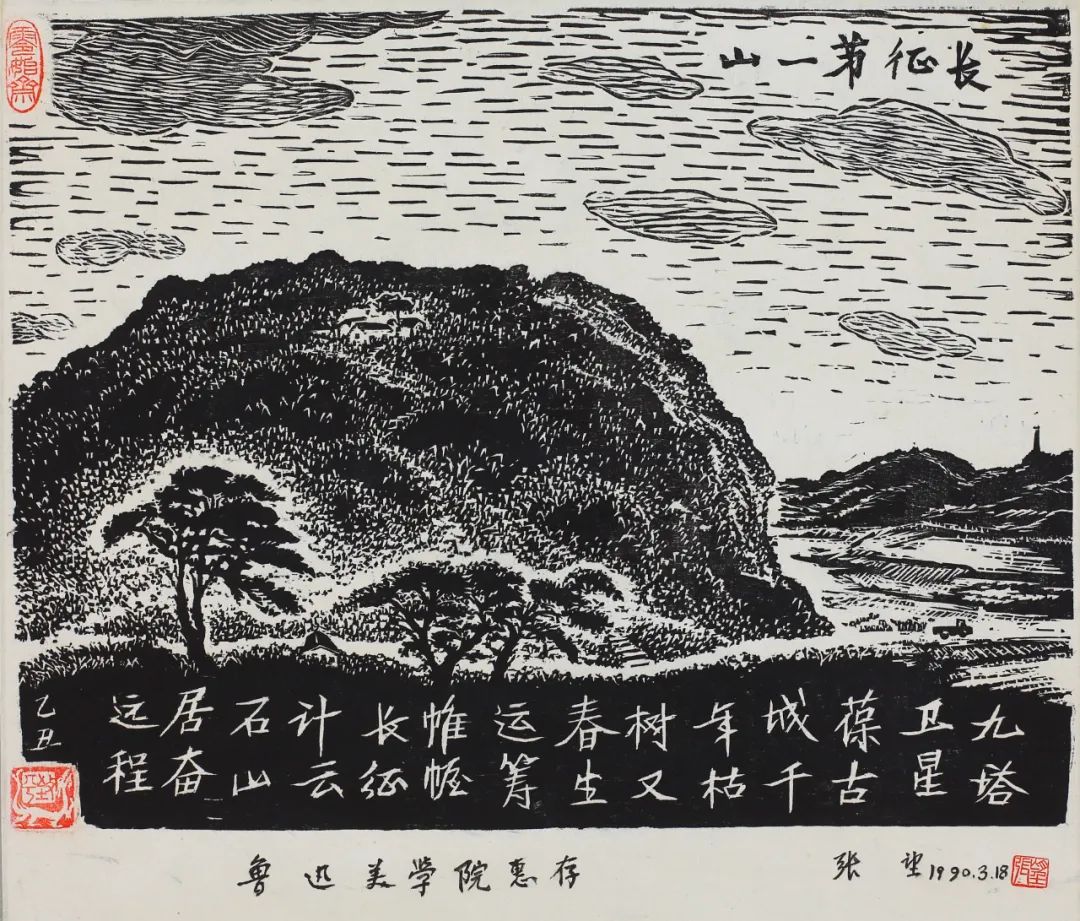 长征第一山
九塔
卫星
葆古
城千
年枯
树又
春生
运筹
帷幄
长征
计云
石山
居奋
远程
乙丑
鲁迅美学院惠存
张望 1990.3.18
张望